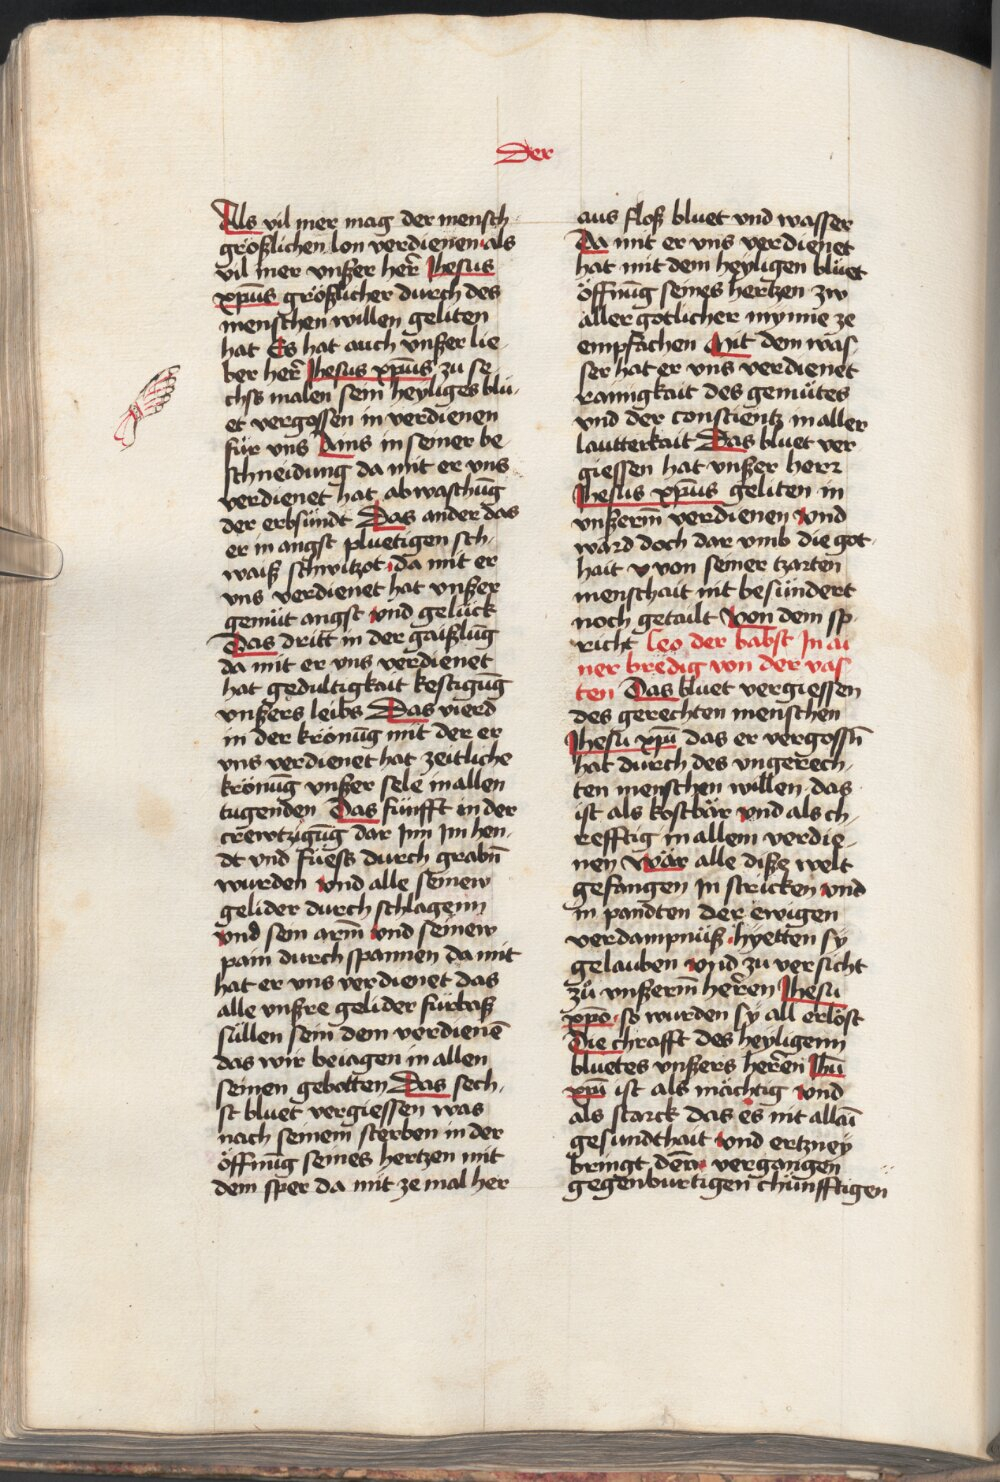 Der
Als vil mer mag der mensch
größlichen lon verdienen als
vil mer vnßer her̄ Jhesus
xp̄us größlicher durch des
menschen willen geliten
hat Es hat auch vnßer lie
ber her̄ Jhesus xp̄us zu se
chss malen sein heyliges blü
et vergossen in verdienen
für vns Ains in seiner be
schneidung da mit er vns
verdienet hat abwaschūg
der erbsündt Das ander das
er in angst pluetigen sch
waiß schwitzot da mit er
vns verdienet hat vnßer
gemüt angst vnd gelück
Das dritt in der gaißlūg
da mit er vns verdienet
hat gedultigkait kestigūg
vnßers leibs Das vierd
in der krönūg mit der er
vns verdienet hat zeitliche
krönūg vnßer sele in allen
tugenden Das fünfft in der
crewtzigūg dar Inn Im hen
dt vnd füess durch grabn̄
wurden vnd alle seinew
gelider durch schlagenn
vnd sein arm̄ vnd seinew
pain durch spannen da mit
hat er vns verdienet das
alle vnßre gelider fürbaß
süllen sein dem verdienē
das wir beiagen in allen
seinen gebotten Das sech
st bluet vergiessen was
nach seinem sterben in der
öffnūg seines hertzen mit
dem sper da mit ze mal her
aus floß bluet vnd wasser
Da mit er vns verdienet
hat mit dem heyligen blüet
öffnūg seines hertzen zw
aller gotlicher mynne ze
empfachen Mit dem was
ser hat er vns verdienet
rainigkait des gemütes
vnd der conscientz in aller
lautterkait Das bluet ver
giessen hat vnßer herr
Jhesus xp̄us geliten in
vnßerm̄ verdienen vnd
ward doch dar vmb die got
hait v von seiner tzarten
menschait nit besündert
noch getailt Von dem sp
richt Leo der babst In ai
ner bredig von der vas
ten Das bluet vergiessen
des gerechten menschen
Jhesu xp̄u das er vergossn̄
hat durch des vngerech
ten menschen willen das
ist als kostbär vnd als ch
refftig in allem verdie
nen wär alle diße welt
gefangen In stricken vnd
in pandten der ewigen
verdampnüß hyetten sy
gelauben vnd zu versicht
zů vnßerm̄ her̄en Jhesu
xp̄o so wurden sy all erlöst
Die chrafft des heyligenn
bluetes vnßers her̄en Jhū
xp̄u ist als mächtig vnd
als starck das es nit allaī
gesundthait vnd ertzney
bringt den̄ vergangen
gegenburtigen chünfftigen